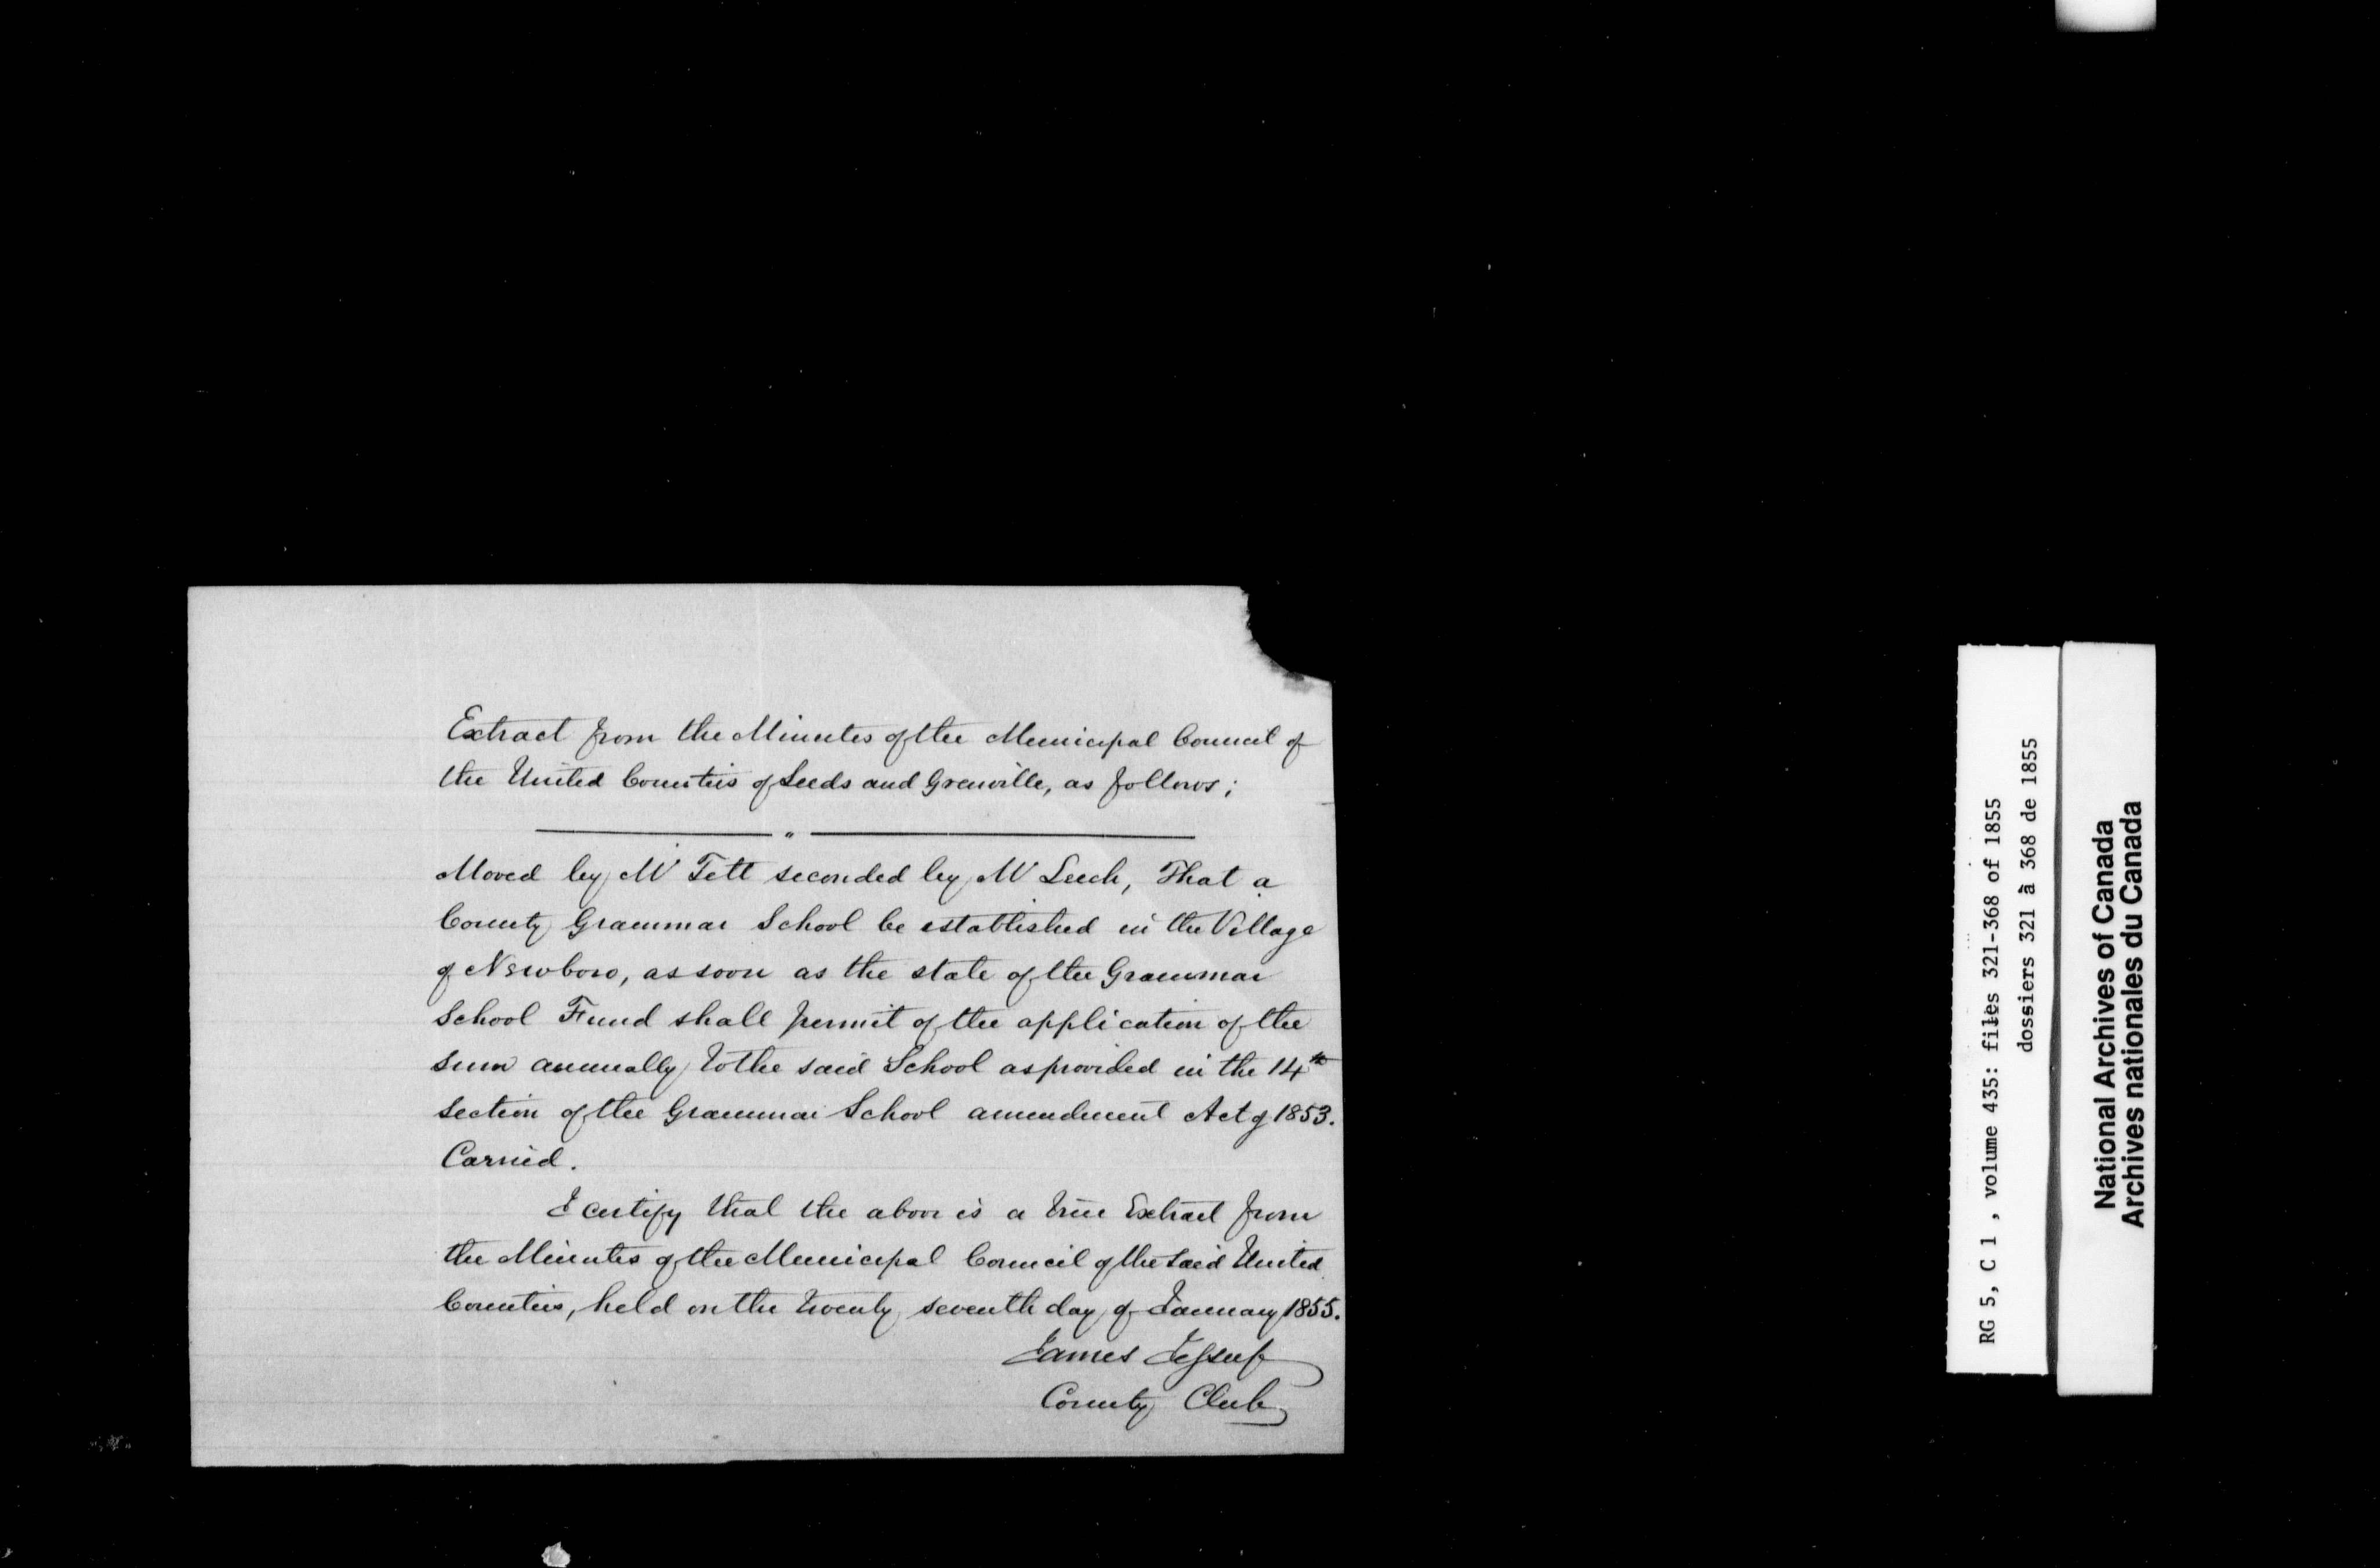 Extract from the Minutes of the Municipal Council of
the United Counties of Leeds and Grenville, as follows;
"
Moved by Mr Tett seconded by Mr Leech, That a
County Grammar School be established in the Village
of Newboro, as soon as the state of the Grammar
School Fund shall permit of the application of the
sum annually to the said School as provided in the 14th
section of the Grammar School amendment Act of 1853.
Carried.
I certify that the above is a true Extract from
the Minutes of the Municipal Council of the said United
Counties, held on the twenty seventh day of January 1855.
James Jessup
County Clerk
RG 5, C 1 , volume 435: files 321-368 of 1855
dossiers 321 à 368 de 1855
National Archives of Canada
Archives nationales du Canada